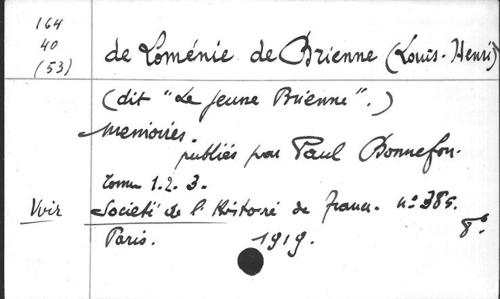 164
40
(53)
de Loménie de Brienne (Louis-Henri)
(dit "Le jeune Brienne".)
Memoires.
publiés par Paul Bonnefon.
Tome 1.2.3.
Voir Societé de l'Histoire de France. n° 385.
Paris. 1919. 8°